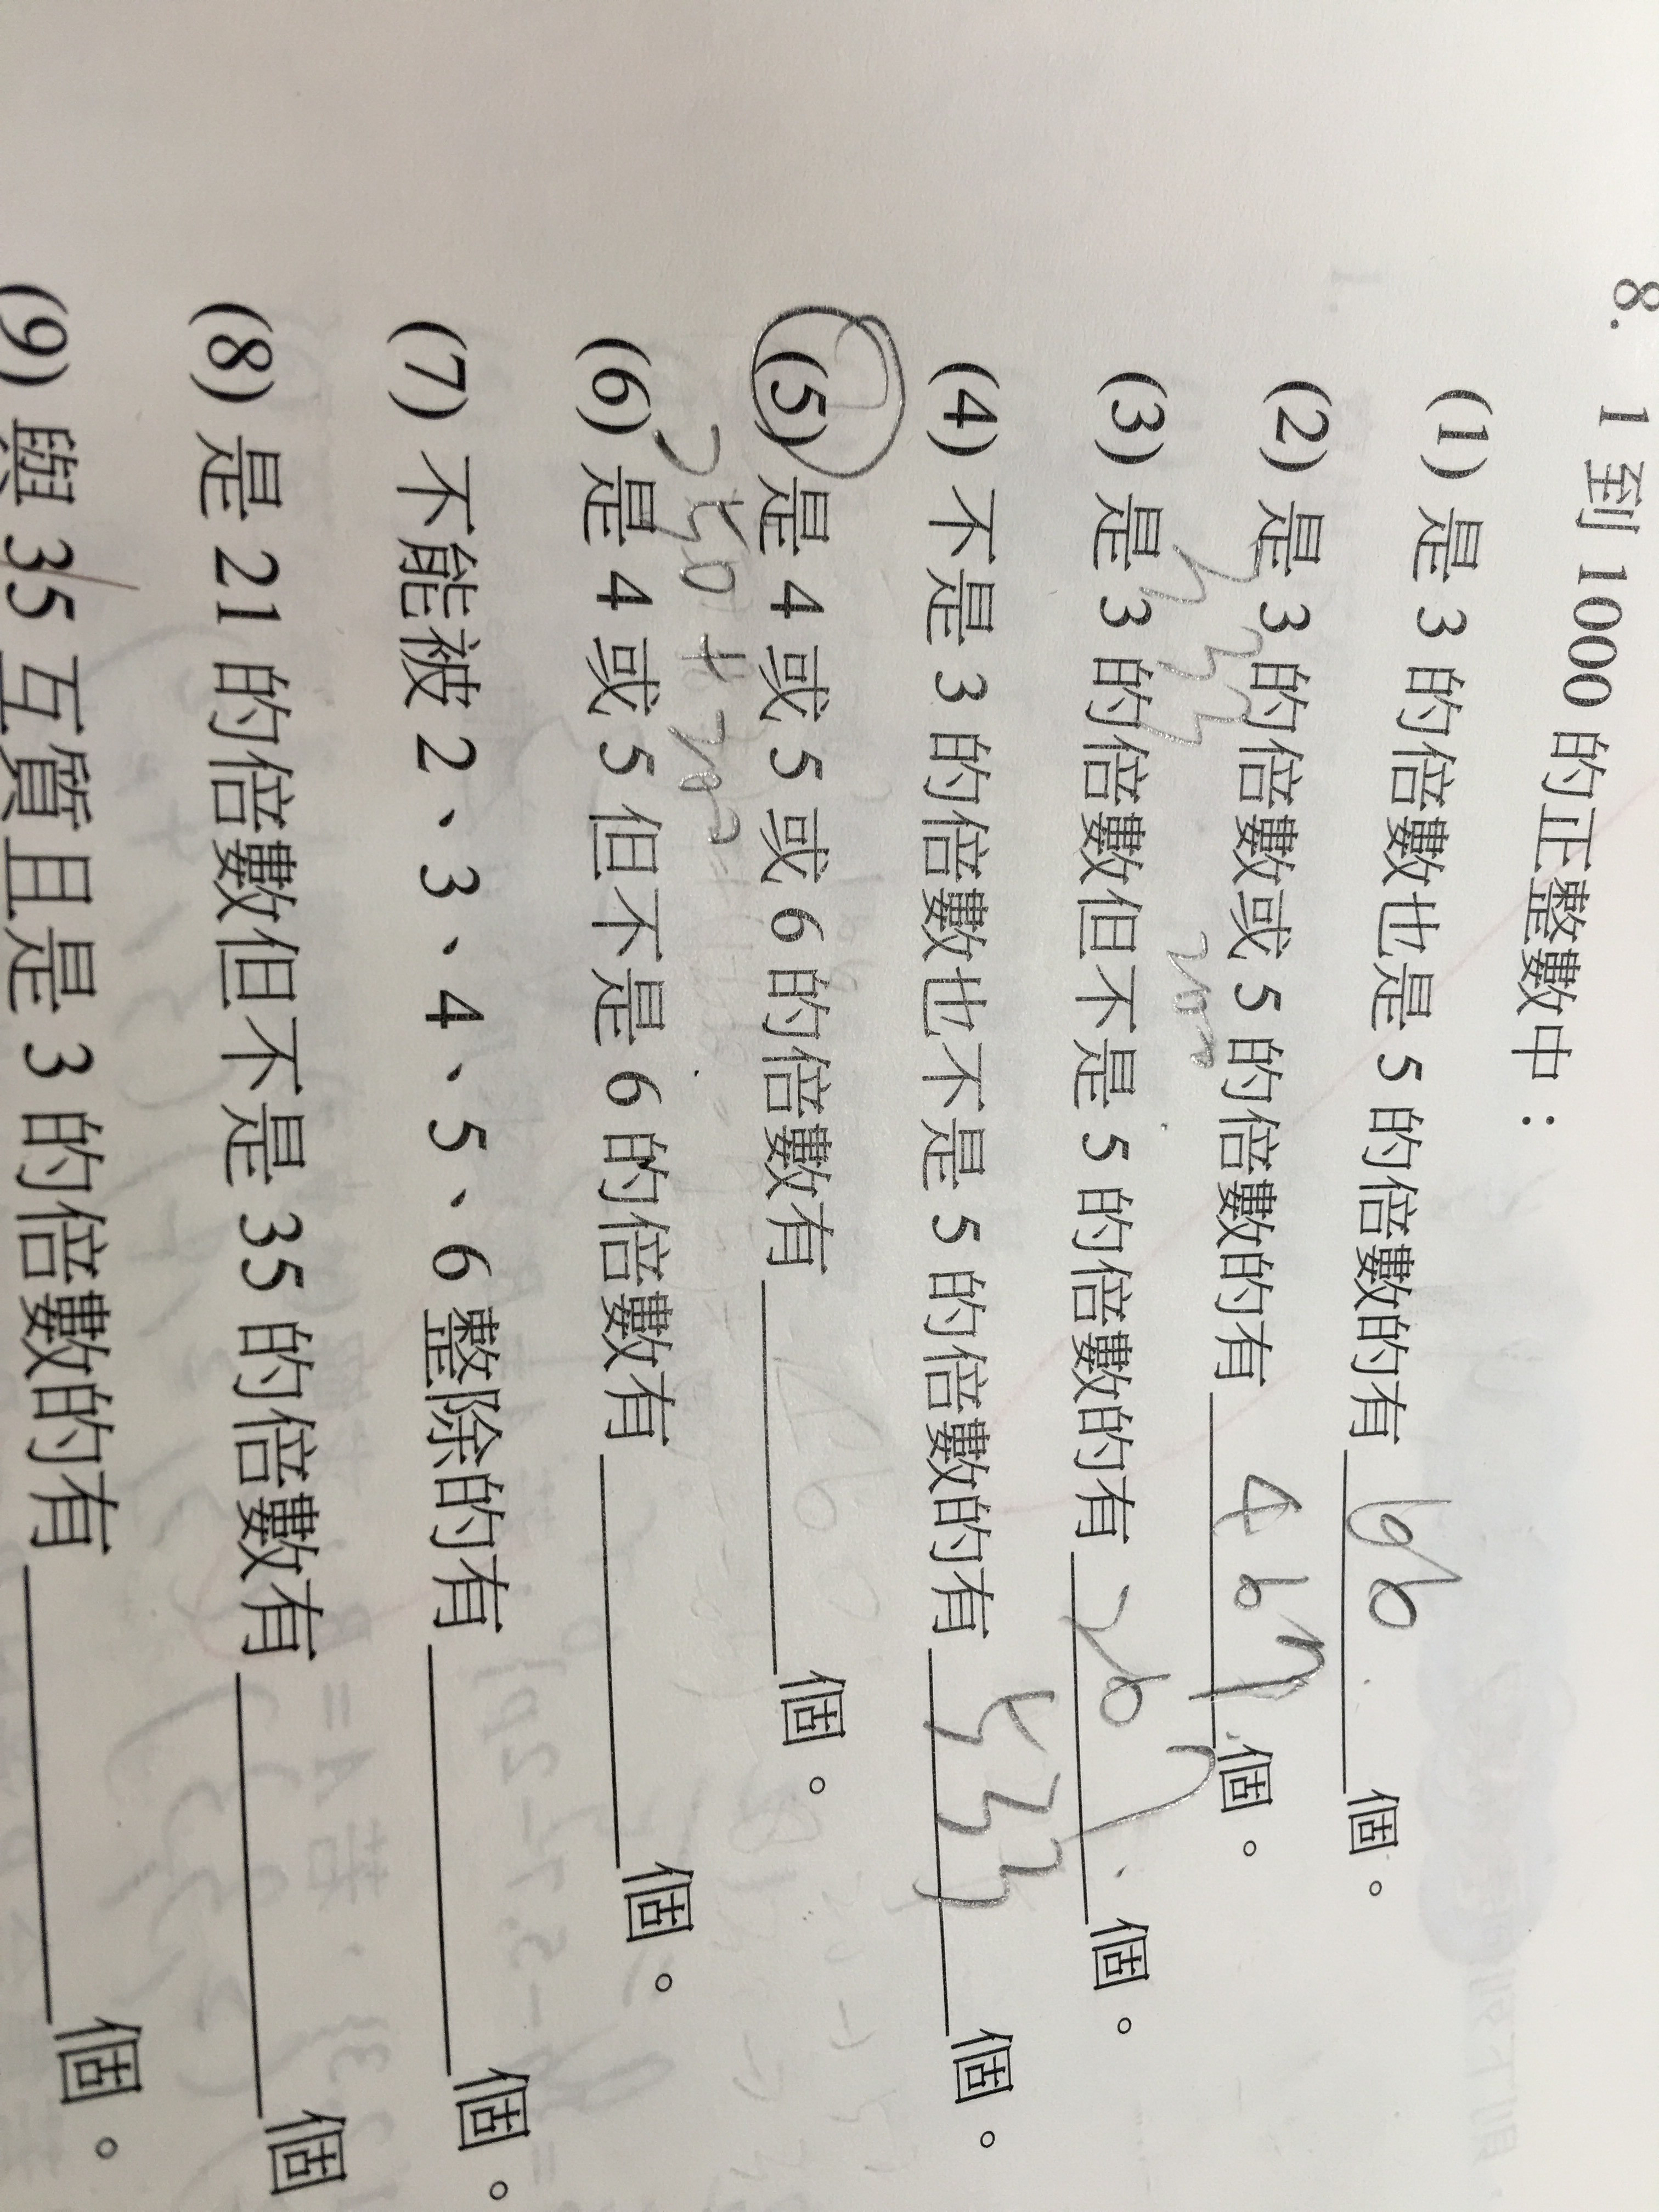 8. 1 到 1000 的正整數中：
(1) 是 3 的倍數也是 5 的倍數的有 66 個。
(2) 是 3 的倍數或 5 的倍數的有 467 個。
333 200
(3) 是 3 的倍數但不是 5 的倍數的有 267 個。
(4) 不是 3 的倍數也不是 5 的倍數的有 533 個。
(5) 是 4 或 5 或 6 的倍數有 個。
250 + 200
(6) 是 4 或 5 但不是 6 的倍數有 個。
(7) 不能被 2、3、4、5、6 整除的有 個。
(8) 是 21 的倍數但不是 35 的倍數有 個
(9) 與 35 互質且是 3 的倍數的有 個。